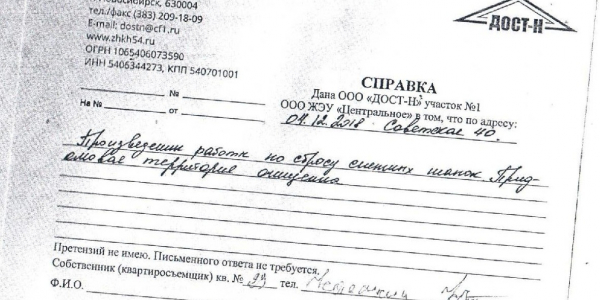 Новосибирск, 630004
тел./факс (383) 209-18-09
E-mail: dostn@cf1.ru
www.zhkh54.ru
ОГРН 1065406073590
ИНН 5406344273, КПП 540701001
№ от
На № от
ДОСТ-Н
СПРАВКА
Дана ООО «ДОСТ-Н» участок №1
ООО ЖЭУ «Центральное» в том, что по адресу:
04.12.2018. Советская 40.
Произведении работы по сбросу снежных шапок. Прид-
омовая территория очищена
Претензий не имею. Письменного ответа не требуется.
Собственник (квартиросъемщик) кв. № тел.
Ф.И.О.